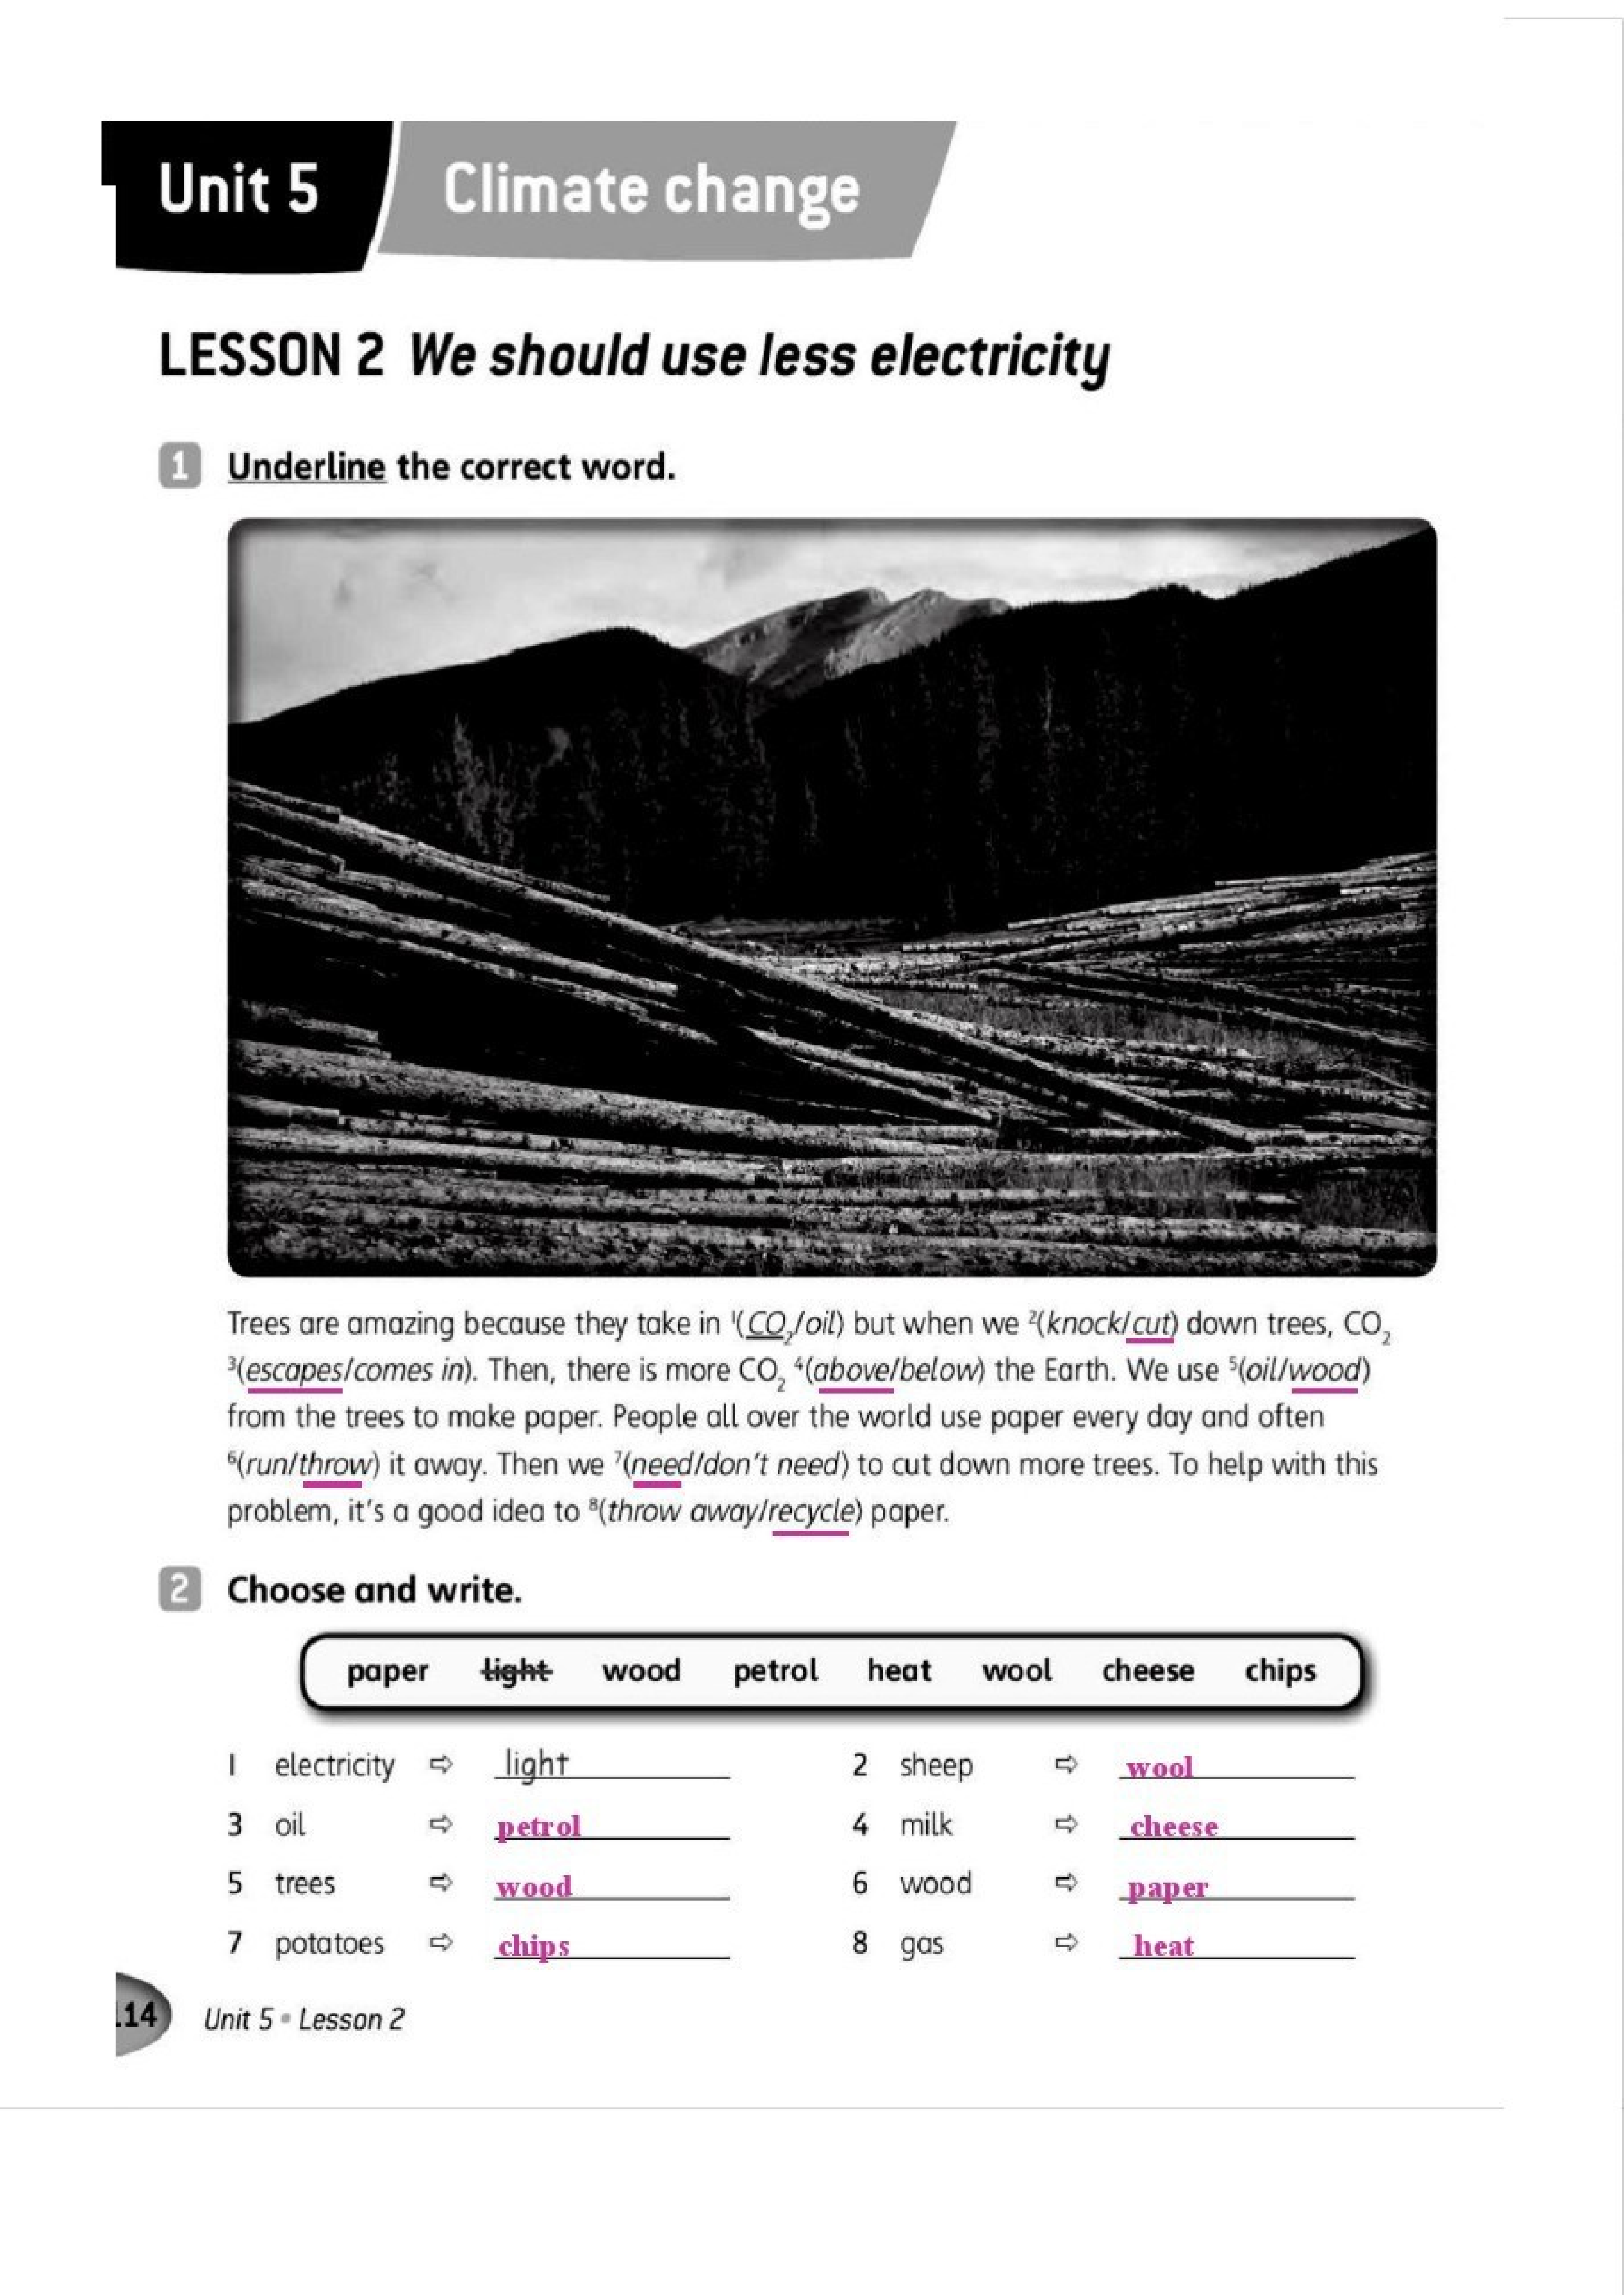 Unit 5 Climate change
LESSON 2 We should use less electricity
1 Underline the correct word.
Trees are amazing because they take in ¹(CO₂/oil) but when we ²(knock/cut) down trees, CO₂
³(escapes/comes in). Then, there is more CO₂ ⁴(above/below) the Earth. We use ⁵(oil/wood)
from the trees to make paper. People all over the world use paper every day and often
⁶(run/throw) it away. Then we ⁷(need/don't need) to cut down more trees. To help with this
problem, it's a good idea to ⁸(throw away/recycle) paper.
2 Choose and write.
paper light wood petrol heat wool cheese chips
1 electricity ⇨ light 2 sheep ⇨ wool
3 oil ⇨ petrol 4 milk ⇨ cheese
5 trees ⇨ wood 6 wood ⇨ paper
7 potatoes ⇨ chips 8 gas ⇨ heat
114 Unit 5 • Lesson 2